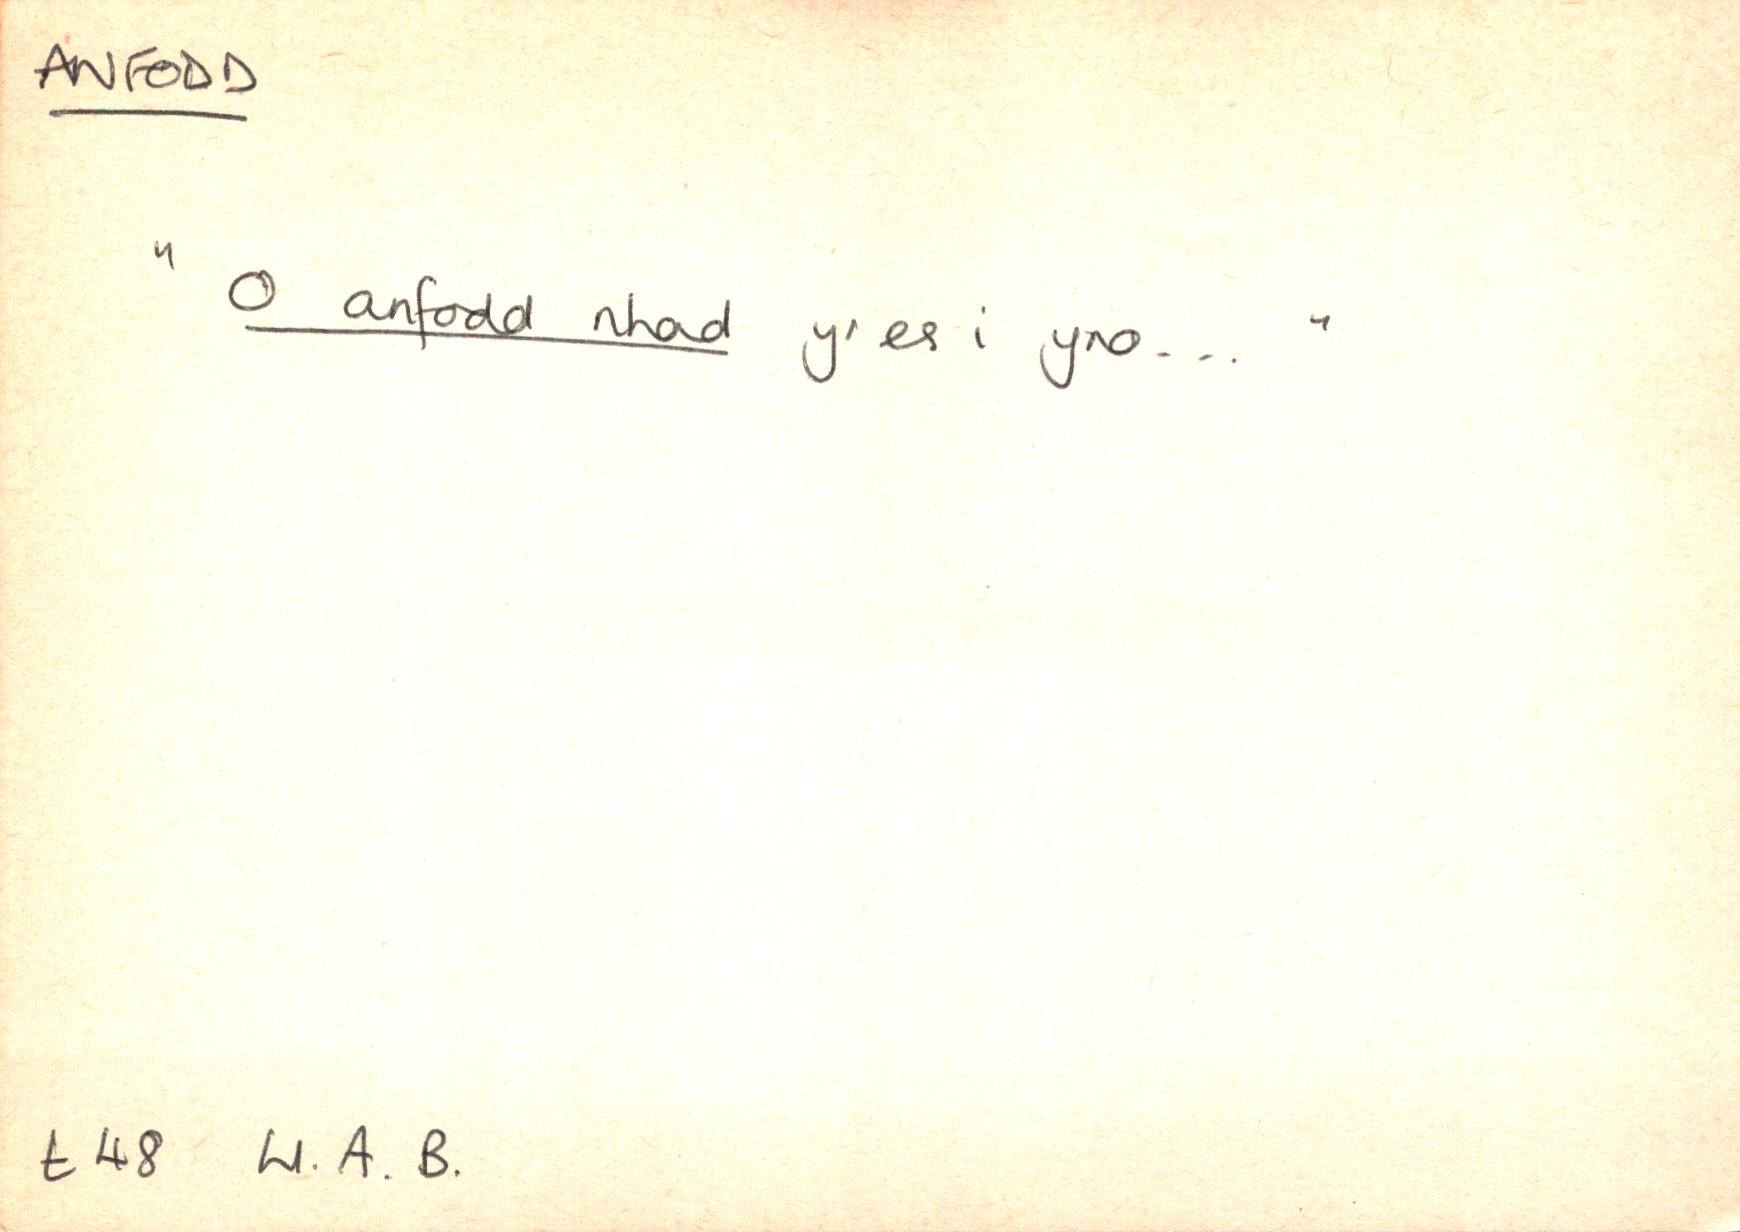 ANFODD
" O anfodd nhad y' es i yno.... "
t 48 W. A. B.